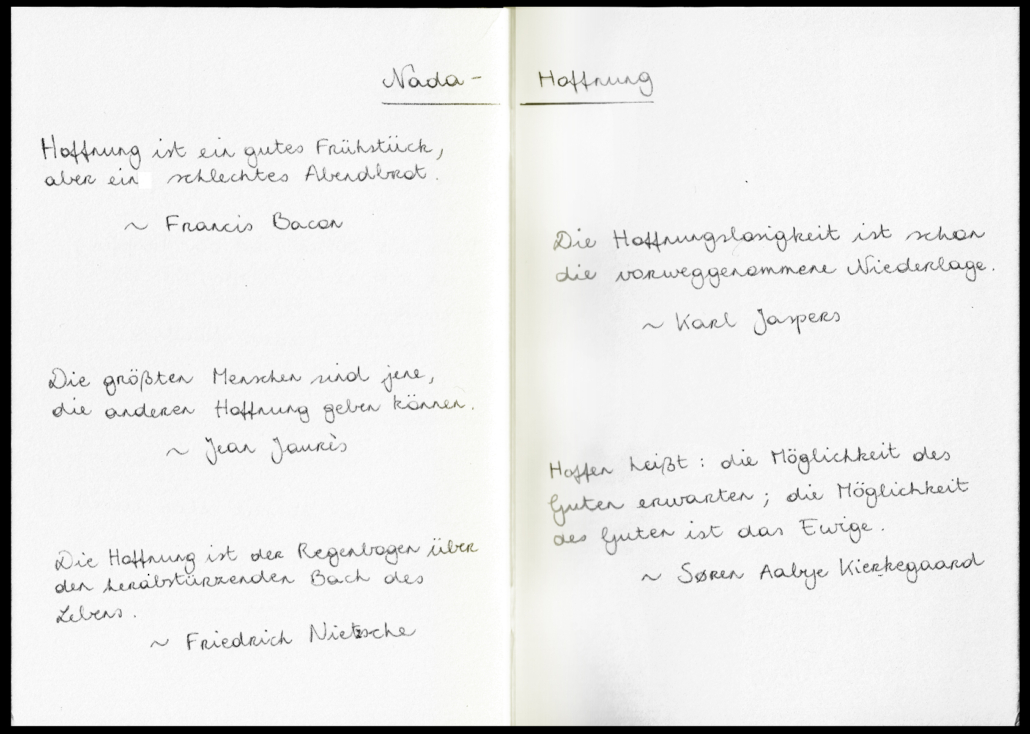 Nada - Hoffnung
Hoffnung ist ein gutes Frühstück,
aber ein schlechtes Abendbrot.
~ Francis Bacon
Die größten Menschen sind jene,
die anderen Hoffnung geben können.
~ Jean Jaurès
Die Hoffnung ist der Regenbogen über
den herabstürzenden Bach des
Lebens.
~ Friedrich Nietzsche
Die Hoffnungslosigkeit ist schon
die vorweggenommene Niederlage.
~ Karl Jaspers
Hoffen heißt: die Möglichkeit des
Guten erwarten; die Möglichkeit
des Guten ist das Ewige.
~ Søren Aabye Kierkegaard